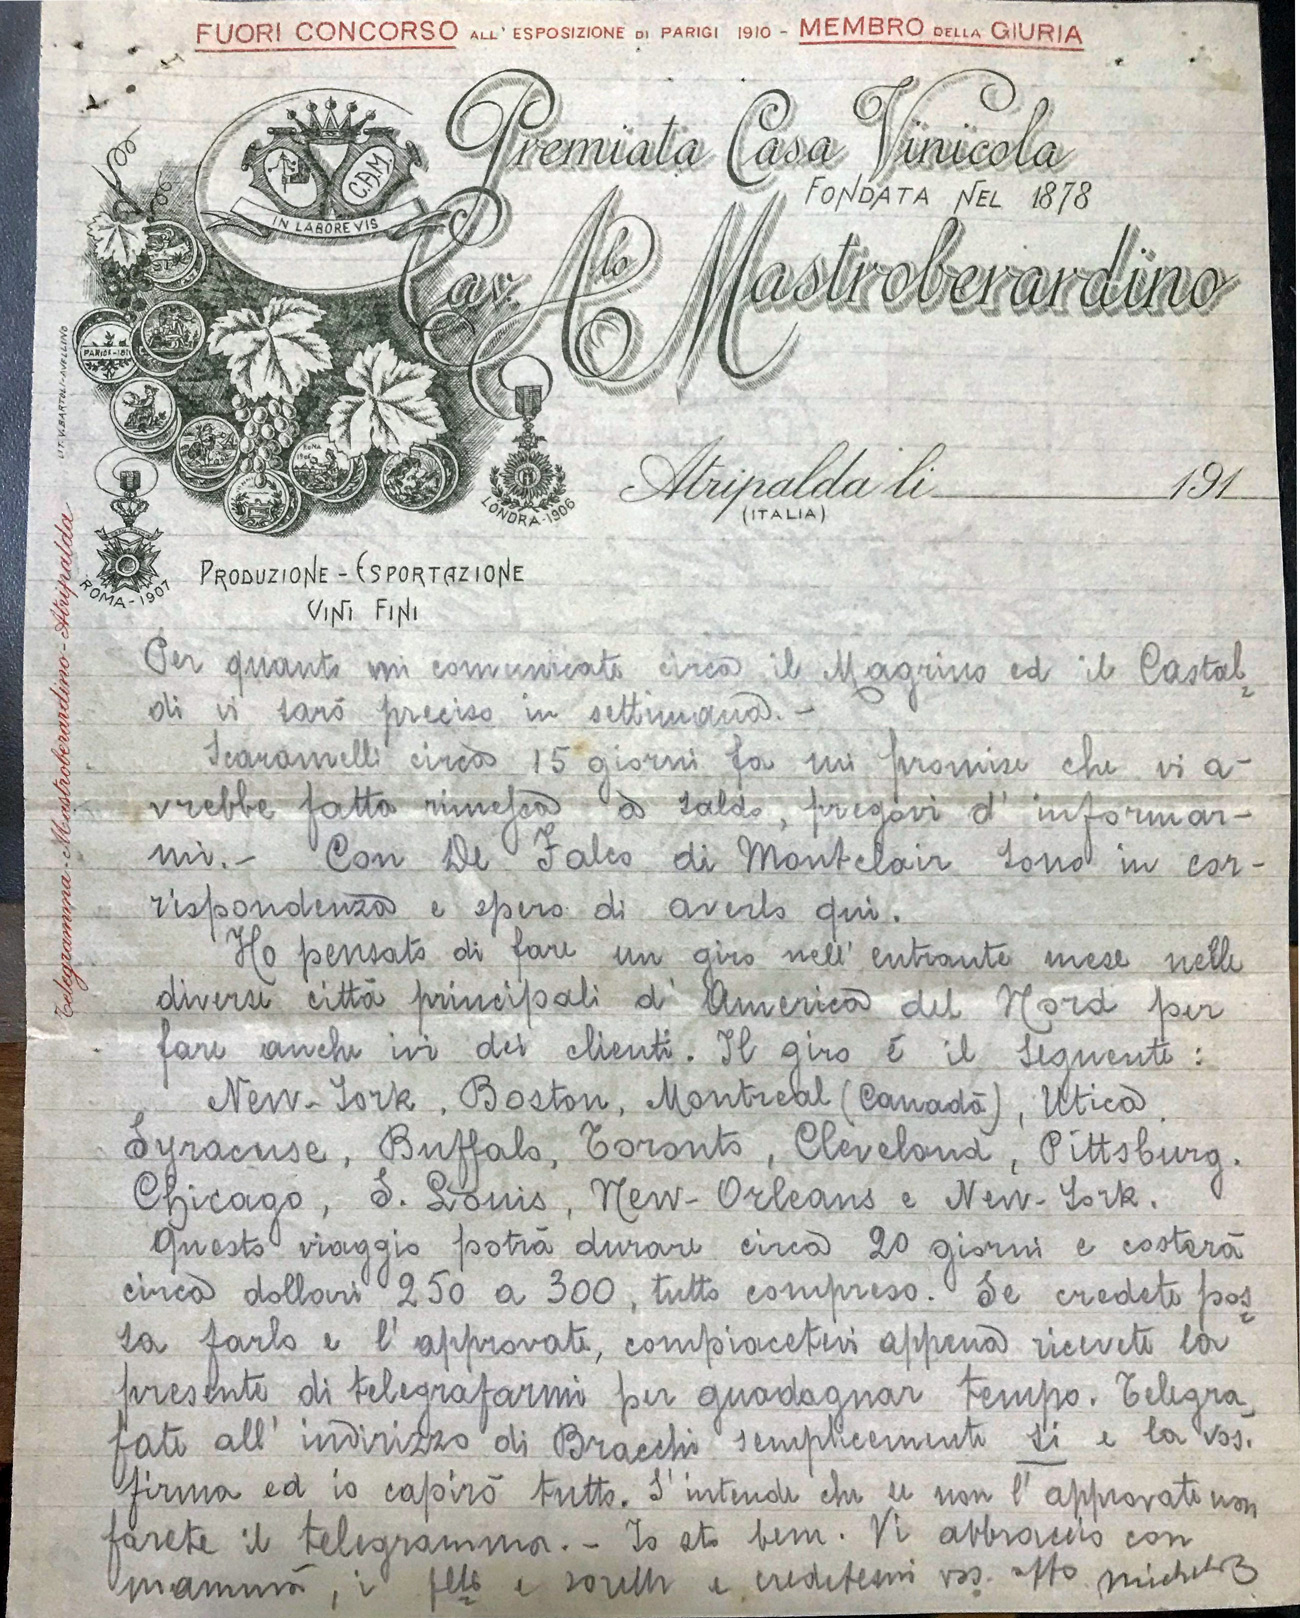 FUORI CONCORSO ALL' ESPOSIZIONE DI PARIGI 1910 - MEMBRO DELLA GIURIA
Premiata Casa Vinicola
FONDATA NEL 1878
Cav. Alo Mastroberardino
C.A.M.
IN LABORE VIS
LIT. V. BARTOLI-AVELLINO
LONDRA-1906
ROMA-1907
Atripalda li 191
(ITALIA)
PRODUZIONE - ESPORTAZIONE
VINI FINI
Telegramma-Mastroberardino-Atripalda
Per quanto mi comunicate circa il Magrino ed il Castal=
di vi sarò preciso in settimana.-
Scaramelli circa 15 giorni fa mi promise che vi a-
vrebbe fatto rimessa a saldo, pregovi d'informar-
mi.- Con De Falco di Montclair sono in cor-
rispondenza e spero di averlo qui.
Ho pensato di fare un giro nell'entrante mese nelle
diverse città principali d'America del Nord per
fare anche ivi dei clienti. Il giro è il seguente:
New-York, Boston, Montreal (Canadà), Utica,
Syracuse, Buffalo, Toronto, Cleveland, Pittsburg.
Chicago, S. Louis, New-Orleans e New-York.
Questo viaggio potrà durare circa 20 giorni e costerà
circa dollari 250 a 300, tutto compreso. Se credete pos=
sa farlo e l'approvate, compiacetevi appena ricevete la
presente di telegrafarmi per guadagnar tempo. Telegra=
fate all'indirizzo di Bracchi semplicemente si e la vos.
firma ed io capirò tutto. S'intende che se non l'approvate non
farete il telegramma.- Io sto bene. Vi abbraccio con
mammà, i flli e sorelle e credetemi vos. affo Michele